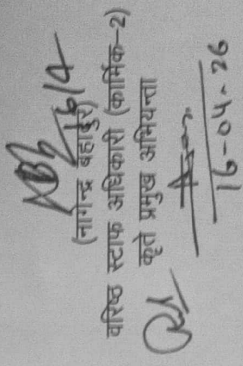 16/4
(नागेन्द्र बहादुर)
वरिष्ठ स्टाफ अधिकारी (कार्मिक–2)
कृते प्रमुख अभियन्ता
16-04-26